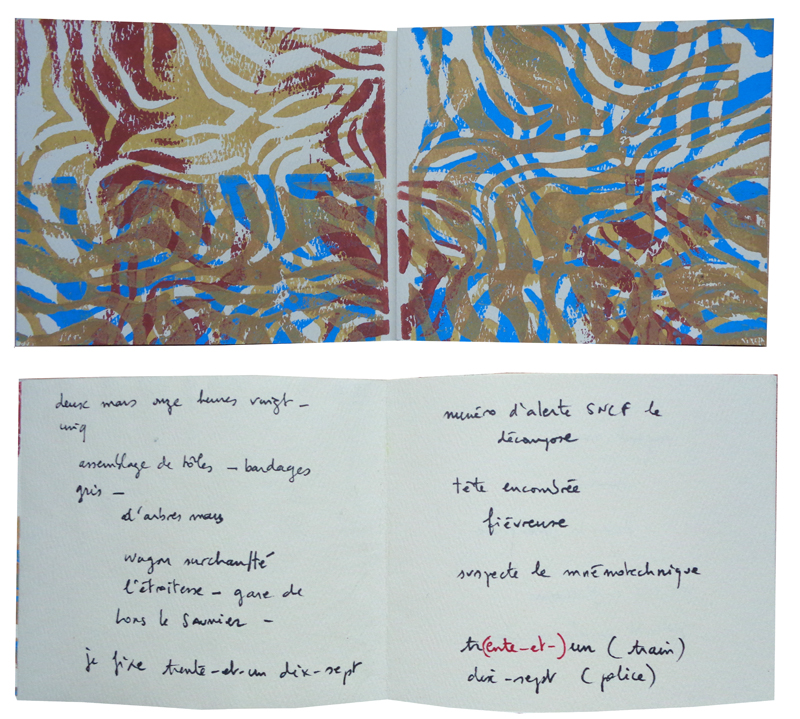 deux mars onze heures vingt –
cinq
assemblage de tôles – bardages
gris –
d'arbres mars
wagon surchauffé
l'étroitesse – gare de
Lons le Saunier –
je fixe trente-et-un dix-sept
numéro d'alerte SNCF le
décompose
tête encombrée
fiévreuse
suspecte le mnémotechnique
tr(ente-et-)un (train)
dix-sept (police)